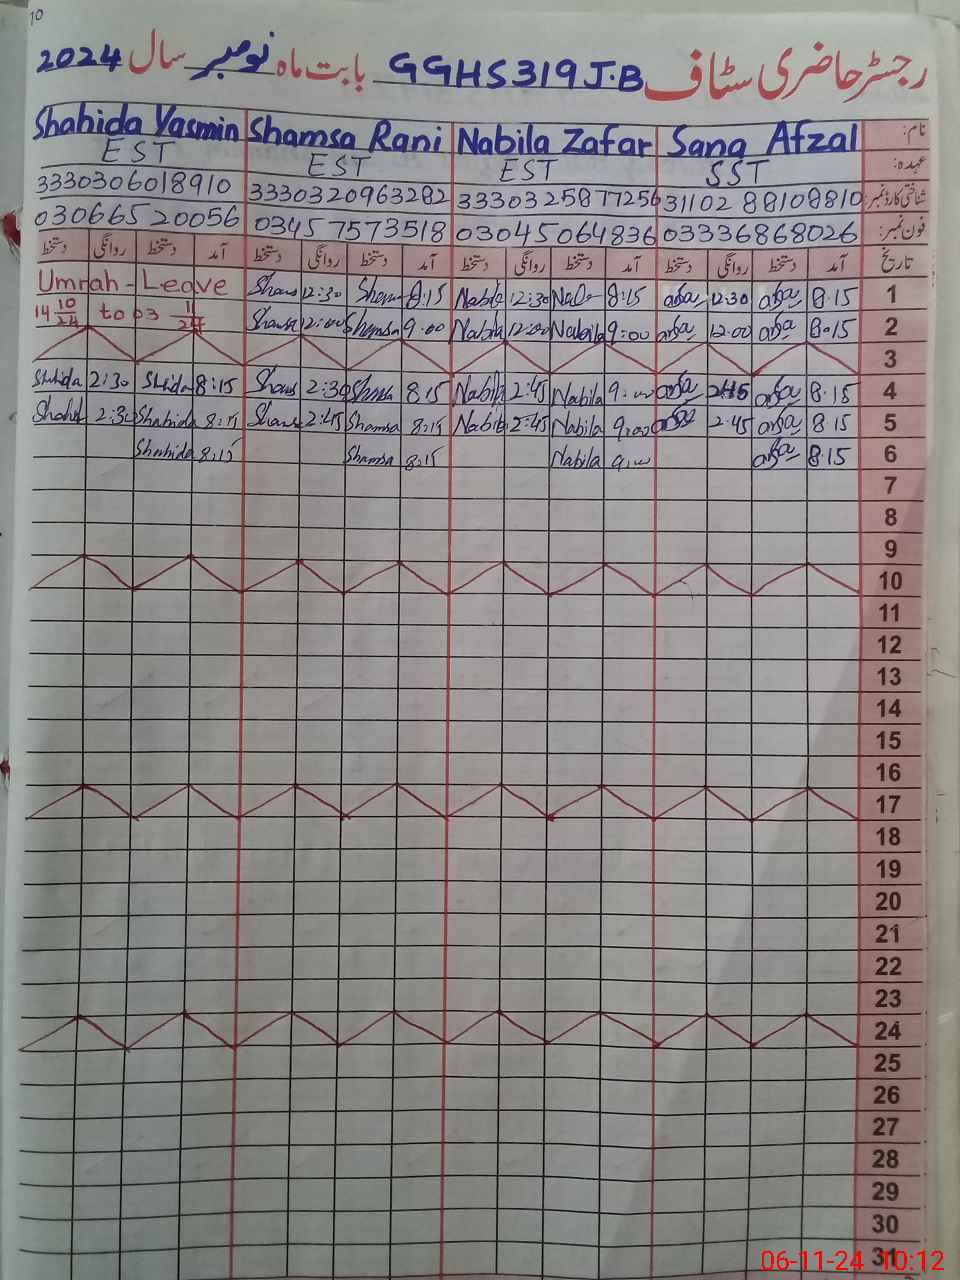 10
رجسٹر حاضری سٹاف GGHS 319 J.B بابت ماہ نومبر سال 2024
نام: Sana Afzal Nabila Zafar Shamsa Rani Shahida Yasmin
عہدہ: SST EST EST EST
شناختی کارڈ نمبر: 3110288108810 3330325877256 3330320963282 3330306018910
فون نمبر: 03336868026 03045064836 03457573518 03066520056
تاریخ آمد دستخط روانگی دستخط آمد دستخط روانگی دستخط آمد دستخط روانگی دستخط آمد دستخط روانگی دستخط
1 8.15 12:30 8:15 12:30 Nabila 8:15 12:30 Umrah - Leave
2 8.15 12:00 9:00 Nabila 12:00 Nabila 9:00 Shamsa 12:00 14 10/24 to 03 11/24
3
4 8.15 2:45 9:00 Nabila 2:45 Nabila 8:15 Shamsa 2:30 8:15 Shahida 2:30 Shahida
5 8.15 2:45 9:00 Nabila 2:45 Nabila 8:15 Shamsa 2:45 8:15 Shahida 2:30
6 8.15 9:00 Nabila 8:15 Shamsa 8:15 Shahida
7
8
9
10
11
12
13
14
15
16
17
18
19
20
21
22
23
24
25
26
27
28
29
30
31
06-11-24 10:12